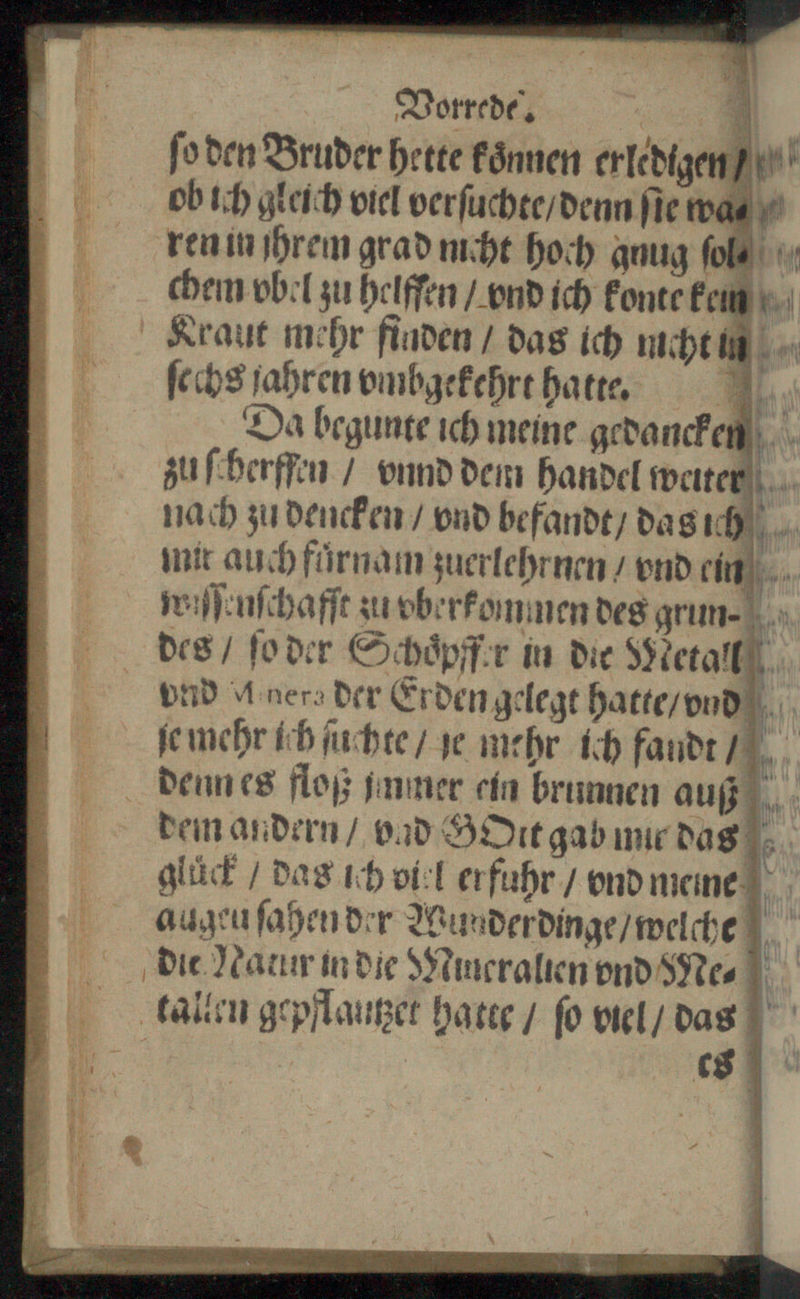 Vorrede.
ſo den Bruder hette koͤnnen erledigen /
ob ich gleich viel verſuchte / denn ſie wa⸗
ren in jhrem grad nicht hoch gnug ſol⸗
chem vbel zu helffen / vnd ich konte kein
Kraut mehr finden / das ich nicht in
ſechs jahren vmbgekehrt hatte.
Da begunte ich meine gedancken
zu ſcherffen / vnnd dem handel weiter
nach zu dencken / vnd befandt / das ich
mir auch fuͤrnam zuerlehrnen / vnd ein
wiſſenſchafft zu vberkommen des grun-
des / ſo der Schoͤpffer in die Metall
vnd Miners der Erden gelegt hatte / vnd
je mehr ich ſuchte / je mehr ich fandt /
denn es floß jmmer ein brunnen auß
dem andern / vnd GOtt gab mir das
gluͤck / das ich viel erfuhr / vnd meine
augen ſahen der Wunderdinge / welche
die Natur in die Mineralien vnd Me⸗
tallen gepflantzet hatte / ſo viel / das
es